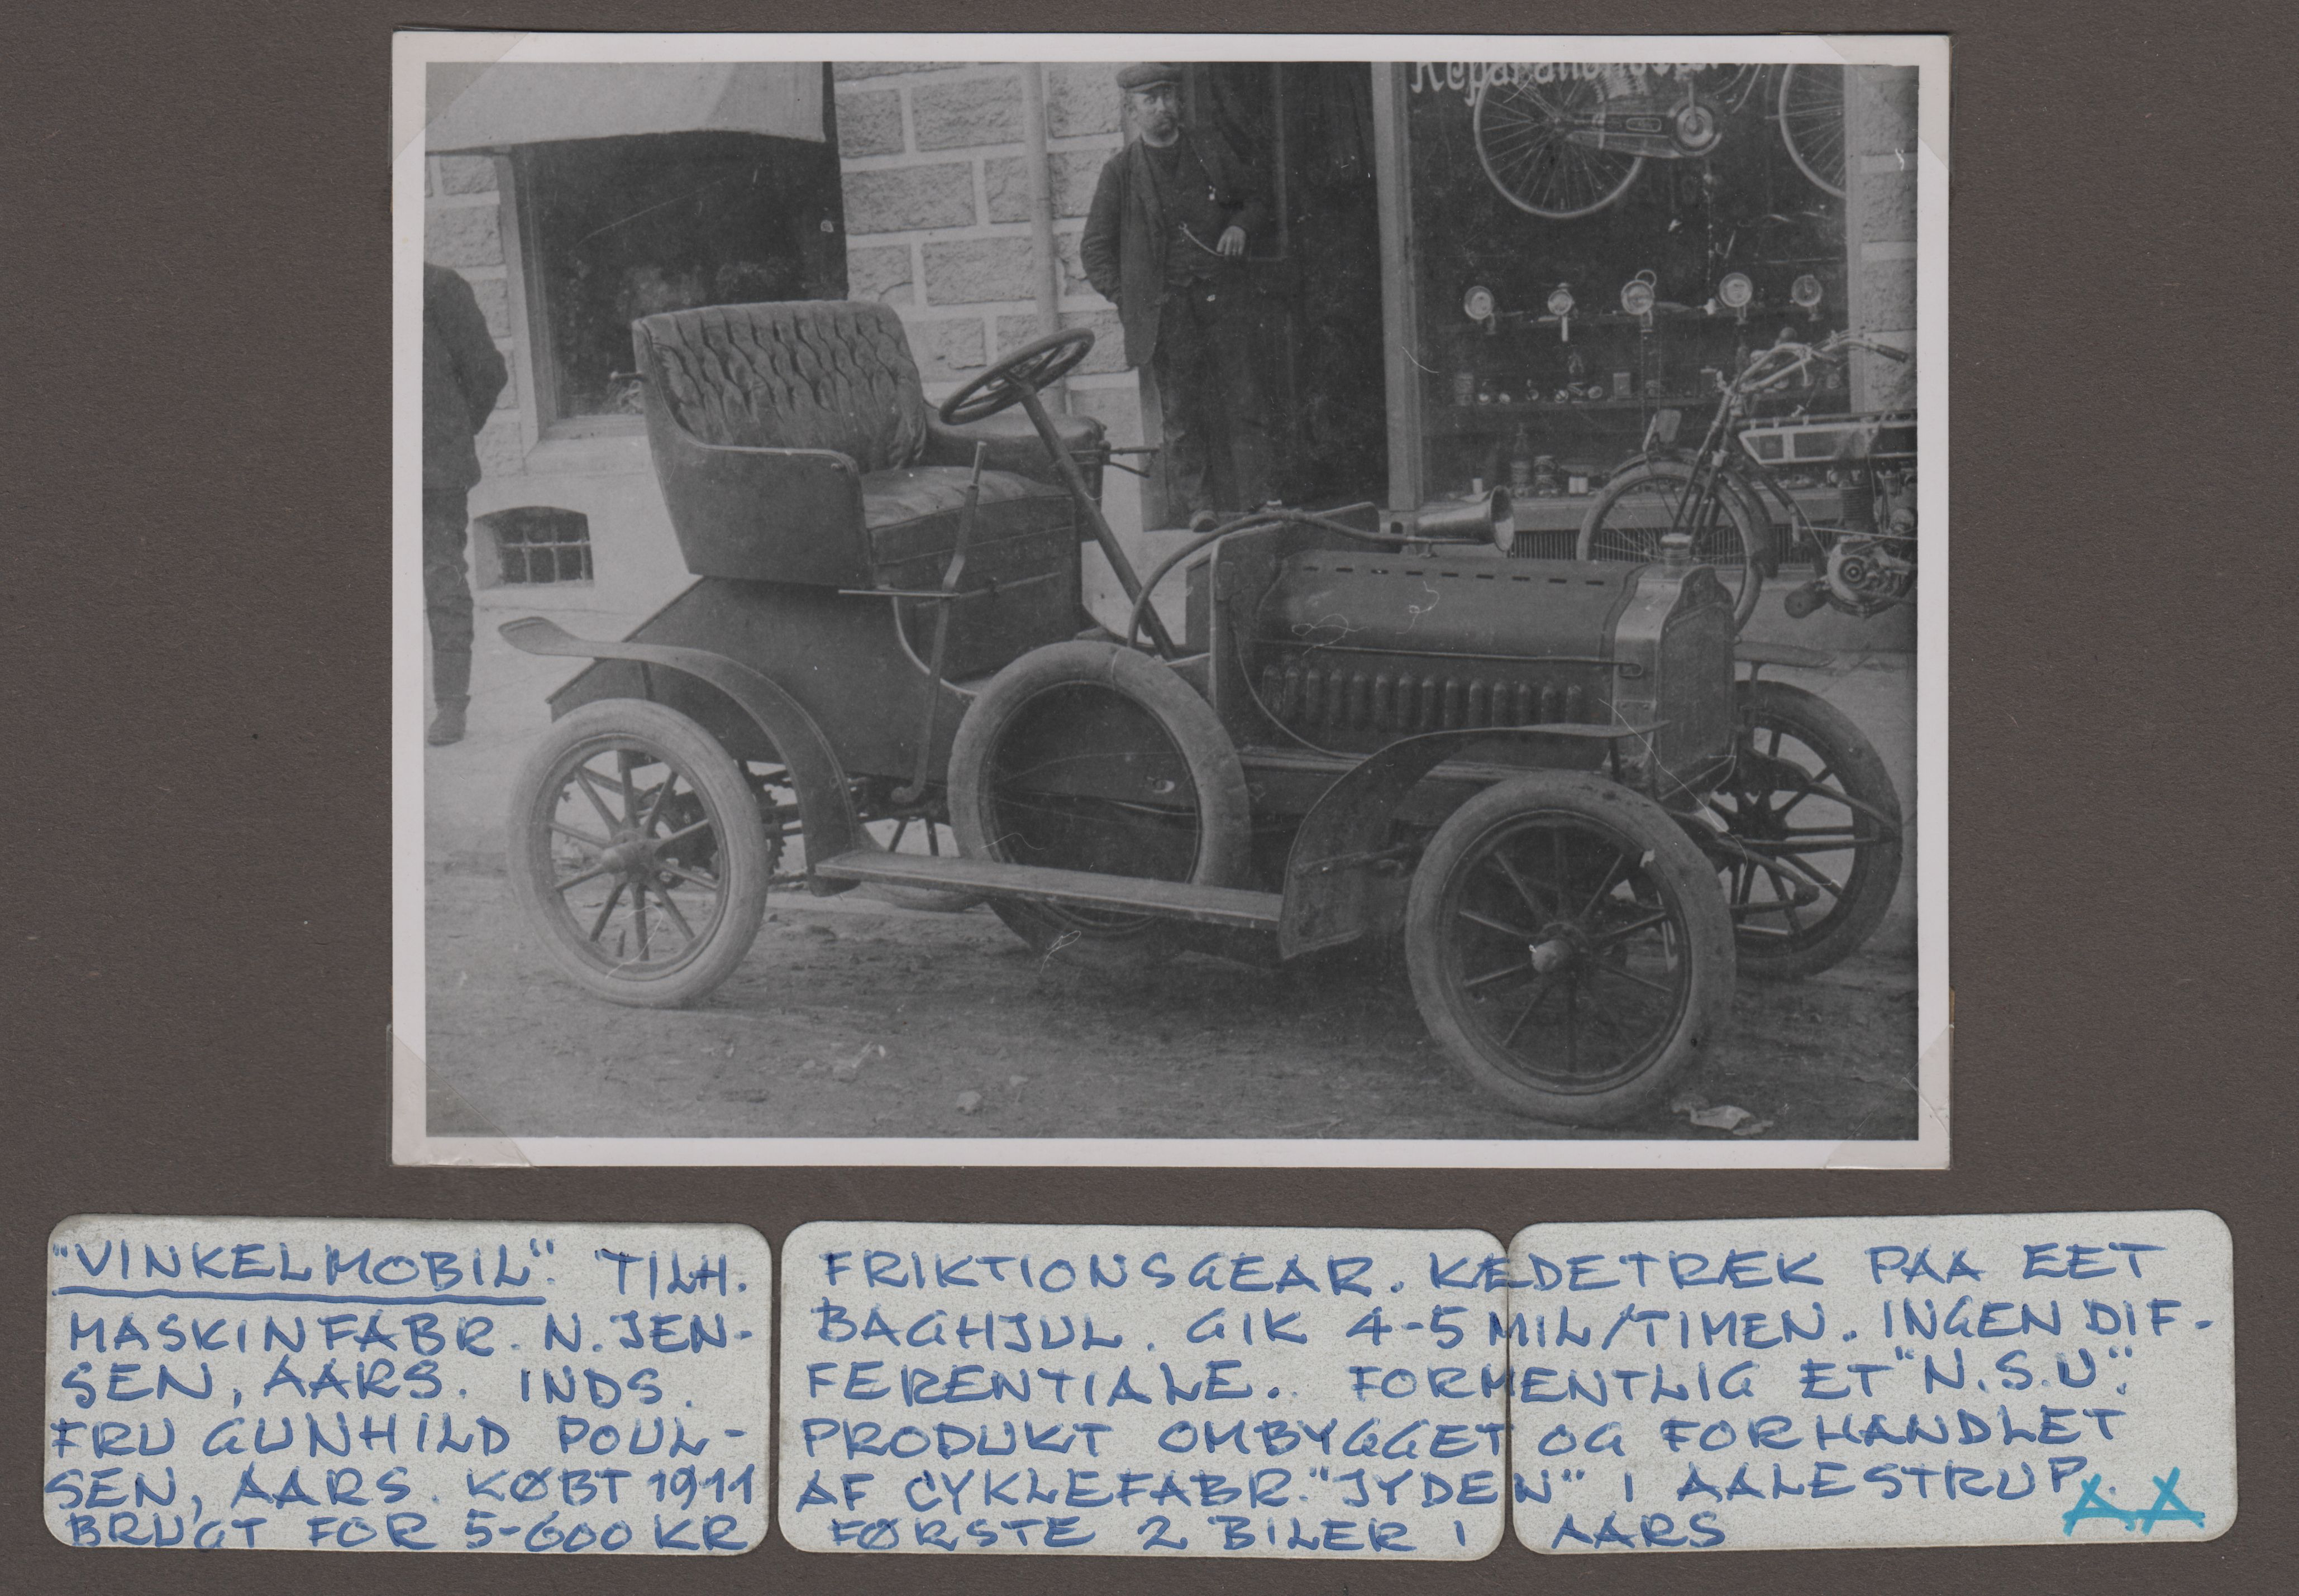 Reparation
"VINKELMOBIL". TILH.
MASKINFABR. N. JEN-
SEN, AARS. INDS.
FRU GUNHILD POUL-
SEN, AARS. KØBT 1911
BRUGT FOR 5-600 KR
FRIKTIONSGEAR. KÆDETRÆK PAA EET
BAGHJUL. GIK 4-5 MIL/TIMEN. INGEN DIF-
FERENTIALE. FORMENTLIG ET "N.S.U".
PRODUKT OMBYGGET OG FORHANDLET
AF CYKLEFABR. "JYDEN" I AALESTRUP.
FØRSTE 2 BILER I AARS
A.A